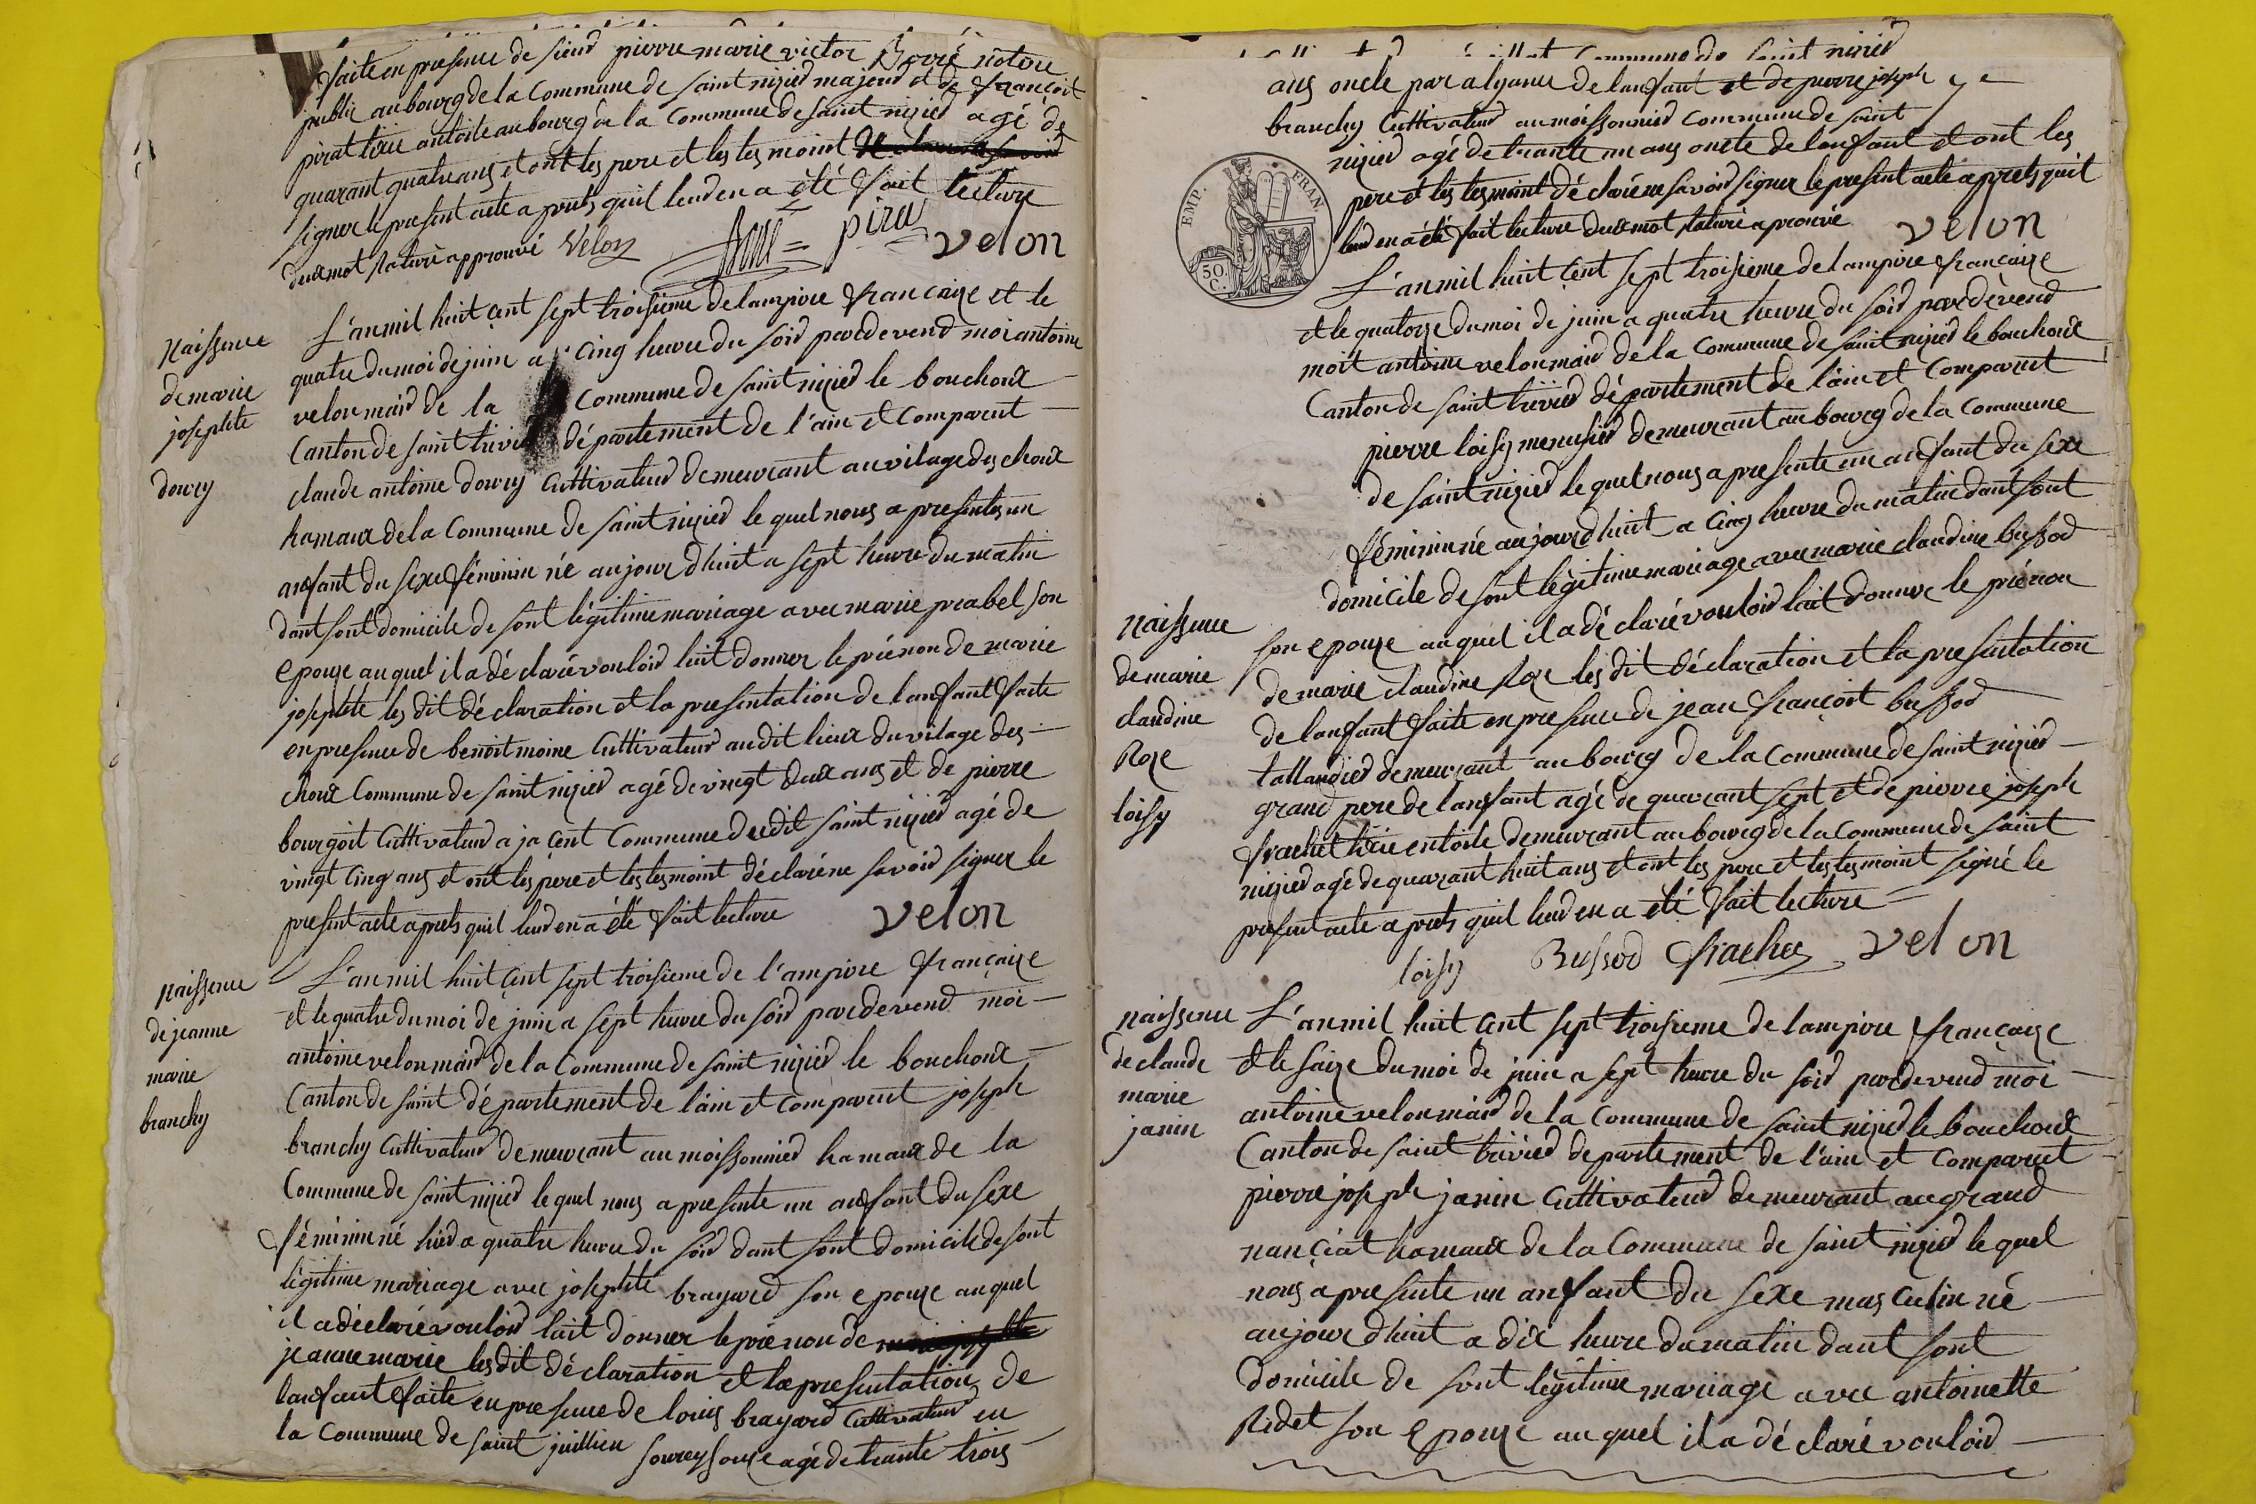 faite en presence de sieur pierre marie victor Borré notere
public au bourg de la Commune de saint nizied majeur et de françoit
pirat tixie antoile au bourg de la Commune de saint nizied agé de
quarant quatre ans et ont les pere et les tesmoint
signer le present acte a prets quil leud en a été fait lecture
deux mot raturé approuvé Velon pirat velon
Naissence
de marie
josephte
doury
L'an mil huit çent sept troisieme de lampire française et le
quatre du moi de juin a cinq heure du soid pardevend moi antoine
velon maid de la Commune de saint nizied le bouchoux
Canton de saint trivied département de l'ain et Comparut
claude antoine doury Cultivateud demeurant au vilage des choux
hamaux de la Commune de saint nizied le quel nous a presentes un
anfant du sexe féminin né au jourd huit a sept heure du matin
dant sont domicile de sont légitime mariage avec marie prabel son
epouze au quel il a dé claré vouloid luit donner le prénon de marie
josephte les dit dé claration et la presentation de lanfant faite
en presence de benoit moine Cultivateud au dit lieux du vilage des
choux Commune de saint nizied agé de vingt deux ans et de pierre
bourgoit Cultivateud a ja çent Commune dudit saint nizied agé de
vingt cinq ans et ont les pere et les tesmoint dé claré ne savoid signer le
present acte a prets quil leud en a été fait lecture velon
naissence
de jeanne
marie
branchy
L'an mil huit çent sept troisieme de l'ampire française
et le quatre du moi de juin a sept heure du soid pardevend moi
antoine velon maid de la Commune de saint nizied le bouchoux
Canton de saint département de l'ain et Comparut joseph
branchy Cultivateud demeurant au moissonnied hamaux de la
Commune de saint nizied le quel nous a presente un anfant du sexe
féminin né hied a quatre heure du soid dant sont domicile de sont
légitime mariage avec josephte brayard son epouze au quel
il a déclaré vouloid luit donner le pré non de
jeanne marie les dit dé claration et la presentation de
lanfant faite en presence de louis brayard Cultivateud en
la Commune de saint juillien sureyssouze agé de trante trois
Commune de saint nizied
ans oncle par alyance de lanfant et de pierre joseph
branchy Cultivateud au moissonnied Commune de saint
nizied agé de trante un ans oncle de lanfant et ont les
pere et les tesmoint dé claré ne savoid signer le present acte a prets quil
leud en a été fait lecture deux mot raturé a prouvé velon
EMP. FRAN.
50. C.
L'an mil huit çent sept troisieme de lampire française
et le quatorze du moi de juin a quatre heure du soid pardevend
moit antoine velon maid de la Commune de saint nizied le bouchoux
Canton de saint trivied département de l'ain et Comparut
pierre loisy menusied demeurant au bourg de la Commune
de saint nizied le quel nous a presente un anfant du sexe
féminin né au jourd huit a cinq heure du matin dant sont
domicile de sont légitime mariage avec marie claudine bussod
Naissence
de marie
claudine
Roze
loisy
son epouze au quel il a dé claré vouloid luit donner le prénon
de marie claudine roze les dit déclaration et la presentation
de lanfant faite en presence de jean françoit bussod
tallandied demeurant au bourg de la Commune de saint nizied
grand pere de lanfant agé de quarant sept et de pierre joseph
frachet tixie en toile demeurant au bourg de la Commune de saint
nizied agé de quarant huit ans et ont les pere et les tesmoint signé le
present acte a prets quil leud en a été fait lecture
loisy Bussod frachet velon
naissence
de claude
marie
janin
L'an mil huit çent sept troisieme de lampire française
et le saize du moi de juin a sept heure du soid pardevend moi
antoine velon maid de la Commune de saint nizied le bouchoux
Canton de saint trivied departement de l'ain et Comparut
pierre joseph janin Cultivateud demeurant au grand
nançiat hamaux de la Commune de saint nizied le quel
nous a presente un anfant du sexe masculin né
au jourd huit a dix heure du matin dant sont
domicile de sont légitime mariage avec antoinette
Ridet son epouze au quel il a dé claré vouloid